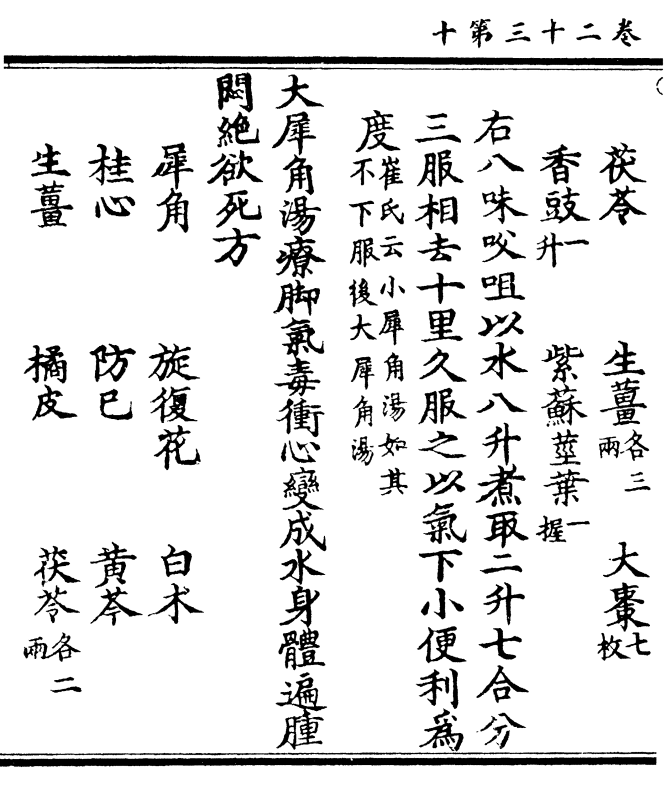 卷二十三第十
茯苓 生薑各三兩 大棗七枚
香豉一升 紫蘇莖葉一握
右八味㕮咀以水八升煮取二升七合分
三服相去十里久服之以氣下小便利爲
度崔氏云小犀角湯如其不下服後大犀角湯
大犀角湯療脚氣毒衝心變成水身體遍腫
悶絶欲死方
犀角 旋復花 白朮
桂心 防巳 黄芩
生薑 橘皮 茯苓各二兩